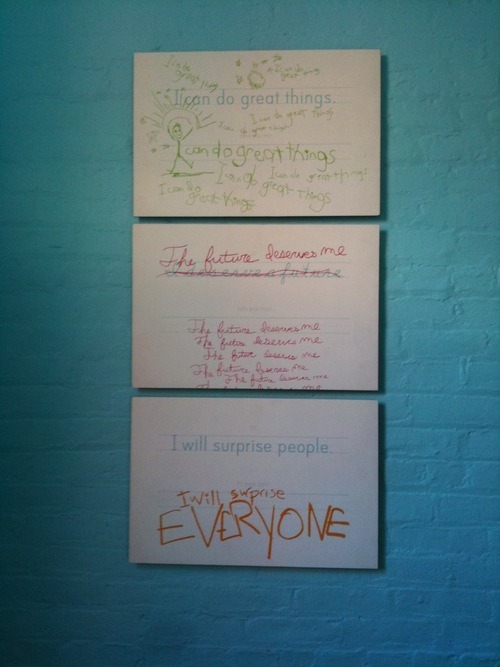 I can do great things
I can do great things
I can do great things.
I can do great things
I can do great things
I can do great things
I can do great things
I can do great things
I can do great things
The future deserves me
I deserve a future
The future deserves me
The future deserves me
The futur deserves me
The future deserves me
The future deserves me
I will surprise people.
I will surprise
EVERYONE